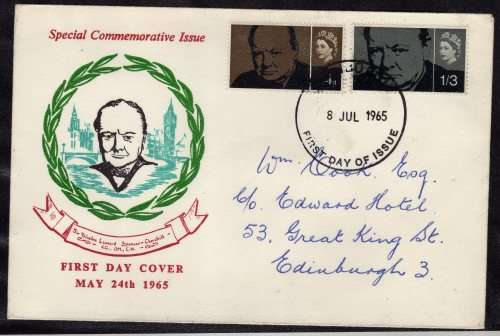 Special Commemorative Issue
4d
1/3
8 JUL 1965
FIRST DAY OF ISSUE
Sir Winston Leonard Spencer-Churchill
FIRST DAY COVER
MAY 24th 1965
Wm Cook, Esq.
C/o. Edward Hotel.
53, Great King St.
Edinburgh 3.